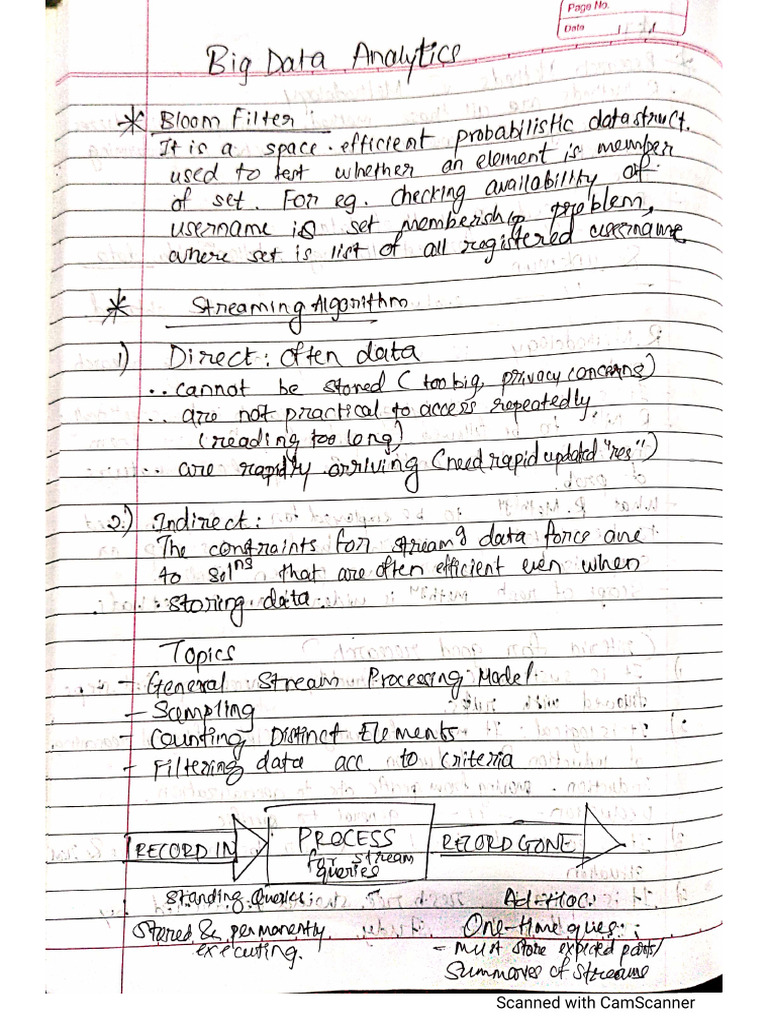 Page No.
Date
Big Data Analytics
* Bloom Filter :
It is a space-efficient probabilistic datastruct.
used to test whether an element is member
of set. For eg. checking availability of
username is set membership problem,
where set is list of all registered username
* Streaming Algorithm
1) Direct : Often data
.. cannot be stored (too big, privacy concerns)
.. are not practical to access repeatedly,
(reading too long)
.. are rapidly arriving (need rapid updated "res")
2.) Indirect :
The contraints for streamg data force one
to solns that are often efficient even when
storing data.
Topics
- General Stream Processing Model.
- Sampling
- Counting Distinct Elements
- Filtering data acc. to criteria
RECORD IN PROCESS RECORD GONE
for stream
queries
Standing Queries : Ad-Hoc:
Stored & permanently One-time ques :
executing. - must store expected parts/
Summaries of streams
Scanned with CamScanner